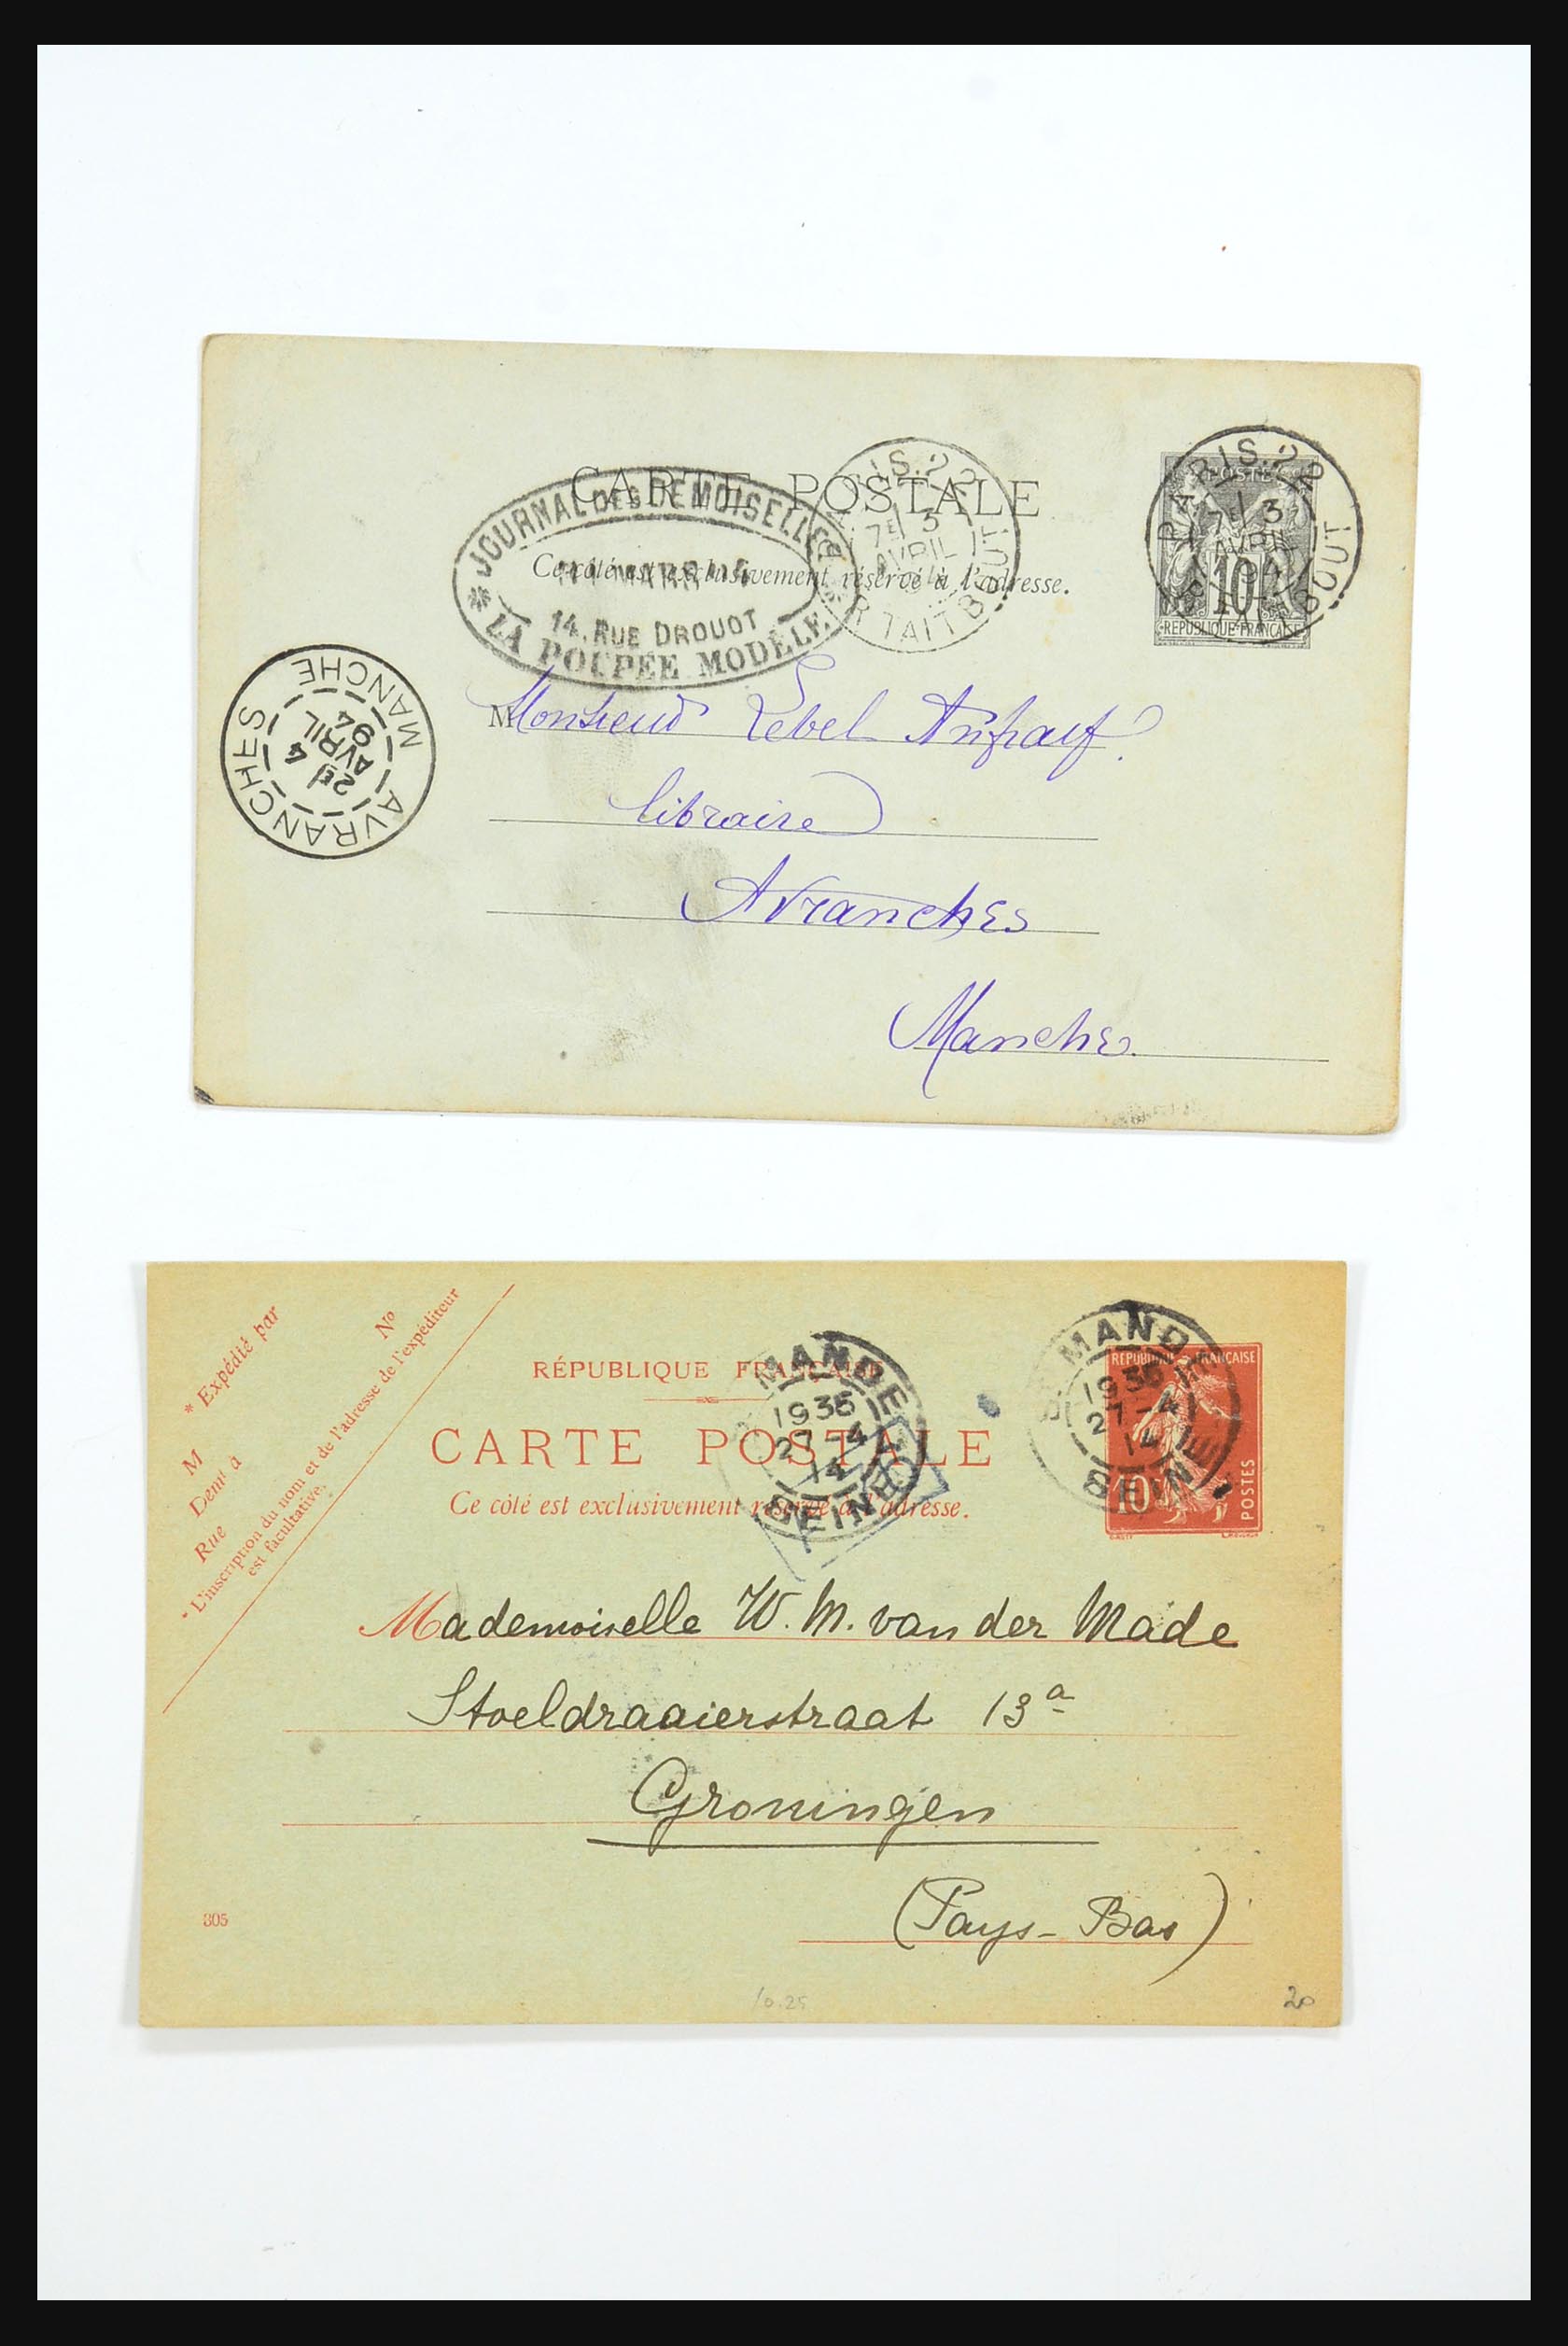 CARTE POSTALE
Ce côté est exclusivement réservé à l'adresse.
JOURNAL DES DEMOISELLES
14, RUE DROUOT
LA POUPÉE MODÈLE
PARIS.22
7E 3
AVRIL
R TAITBOUT
PARIS.22
7E 3
AVRIL
94
TAITBOUT
POSTES
10
REPUBLIQUE FRANÇAISE
AVRANCHES
2E 4
AVRIL
94
MANCHE
Monsieur Lebel
libraire
Avranches
Manche
* Expédié par
No
M
Demt à
Rue
* L'inscription du nom et de l'adresse de l'expéditeur
est facultative.
RÉPUBLIQUE FRANÇAISE
CARTE POSTALE
Ce côté est exclusivement réservé à l'adresse.
MANDE
1936
27-4
14
SEINE
MANDE
1936
27-4
14
SEINE
REPUBLIQUE FRANÇAISE
10
POSTES
Mademoiselle W. M. van der Made
Stoeldraaierstraat 13a
Groningen
(Pays-Bas)
305
10.25
20